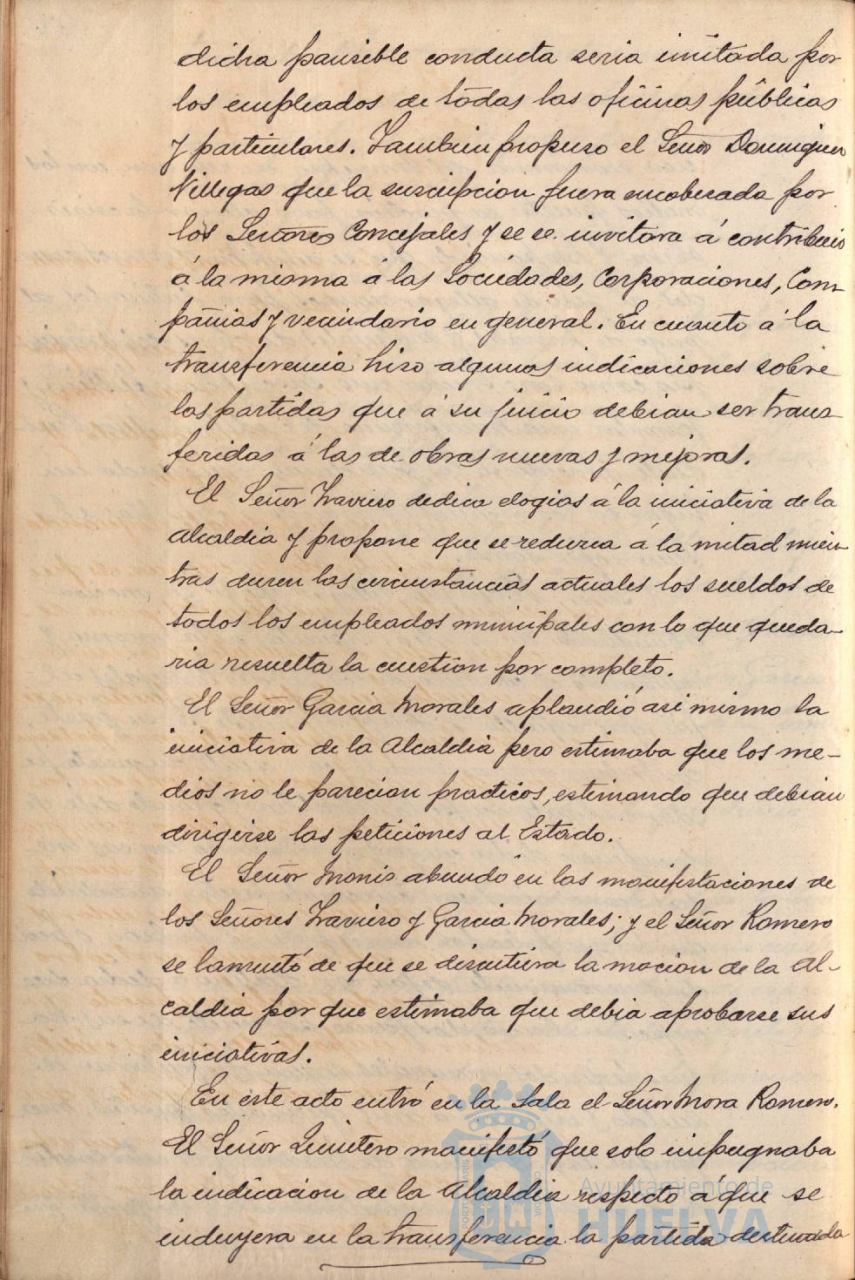 dicha pausible conducta seria imitada por
los empleados de todas las oficinas públicas
y particulares. Tambien propuso el Señor Dominguez
Villegas que la suscripcion fuera encabezada por
los Señores Concejales y se se invitara á contribuir
á la misma á las Sociedades, Corporaciones, Com-
pañias y vecindario en general. En cuanto á la
transferencia hizo algunas indicaciones sobre
las partidas que á su juicio debian ser trans-
feridas á las de obras nuevas y mejoras.
El Señor Travieso dedica elogios á la iniciativa de la
Alcaldia y propone que se reduzca á la mitad mien-
tras duren las circunstancias actuales los sueldos de
todos los empleados municipales con lo que queda-
ria resuelta la cuestion por completo.
El Señor Garcia Morales aplaudió asi mismo la
iniciativa de la Alcaldia pero estimaba que los me-
dios no le parecian practicos, estimando que debian
dirigirse las peticiones al Estado.
El Señor Monis abundó en las manifestaciones de
los Señores Travieso y Garcia Morales; y el Señor Romero
se lamentó de que se discutiera la mocion de la Al-
caldia por que estimaba que debia aprobarse sus
iniciativas.
En este acto entró en la Sala el Señor Mora Romero.
El Señor Quintero manifestó que solo impugnaba
la indicacion de la Alcaldia respecto á que se
incluyera en la transferencia la partida destinada
Ayuntamiento de
HUELVA